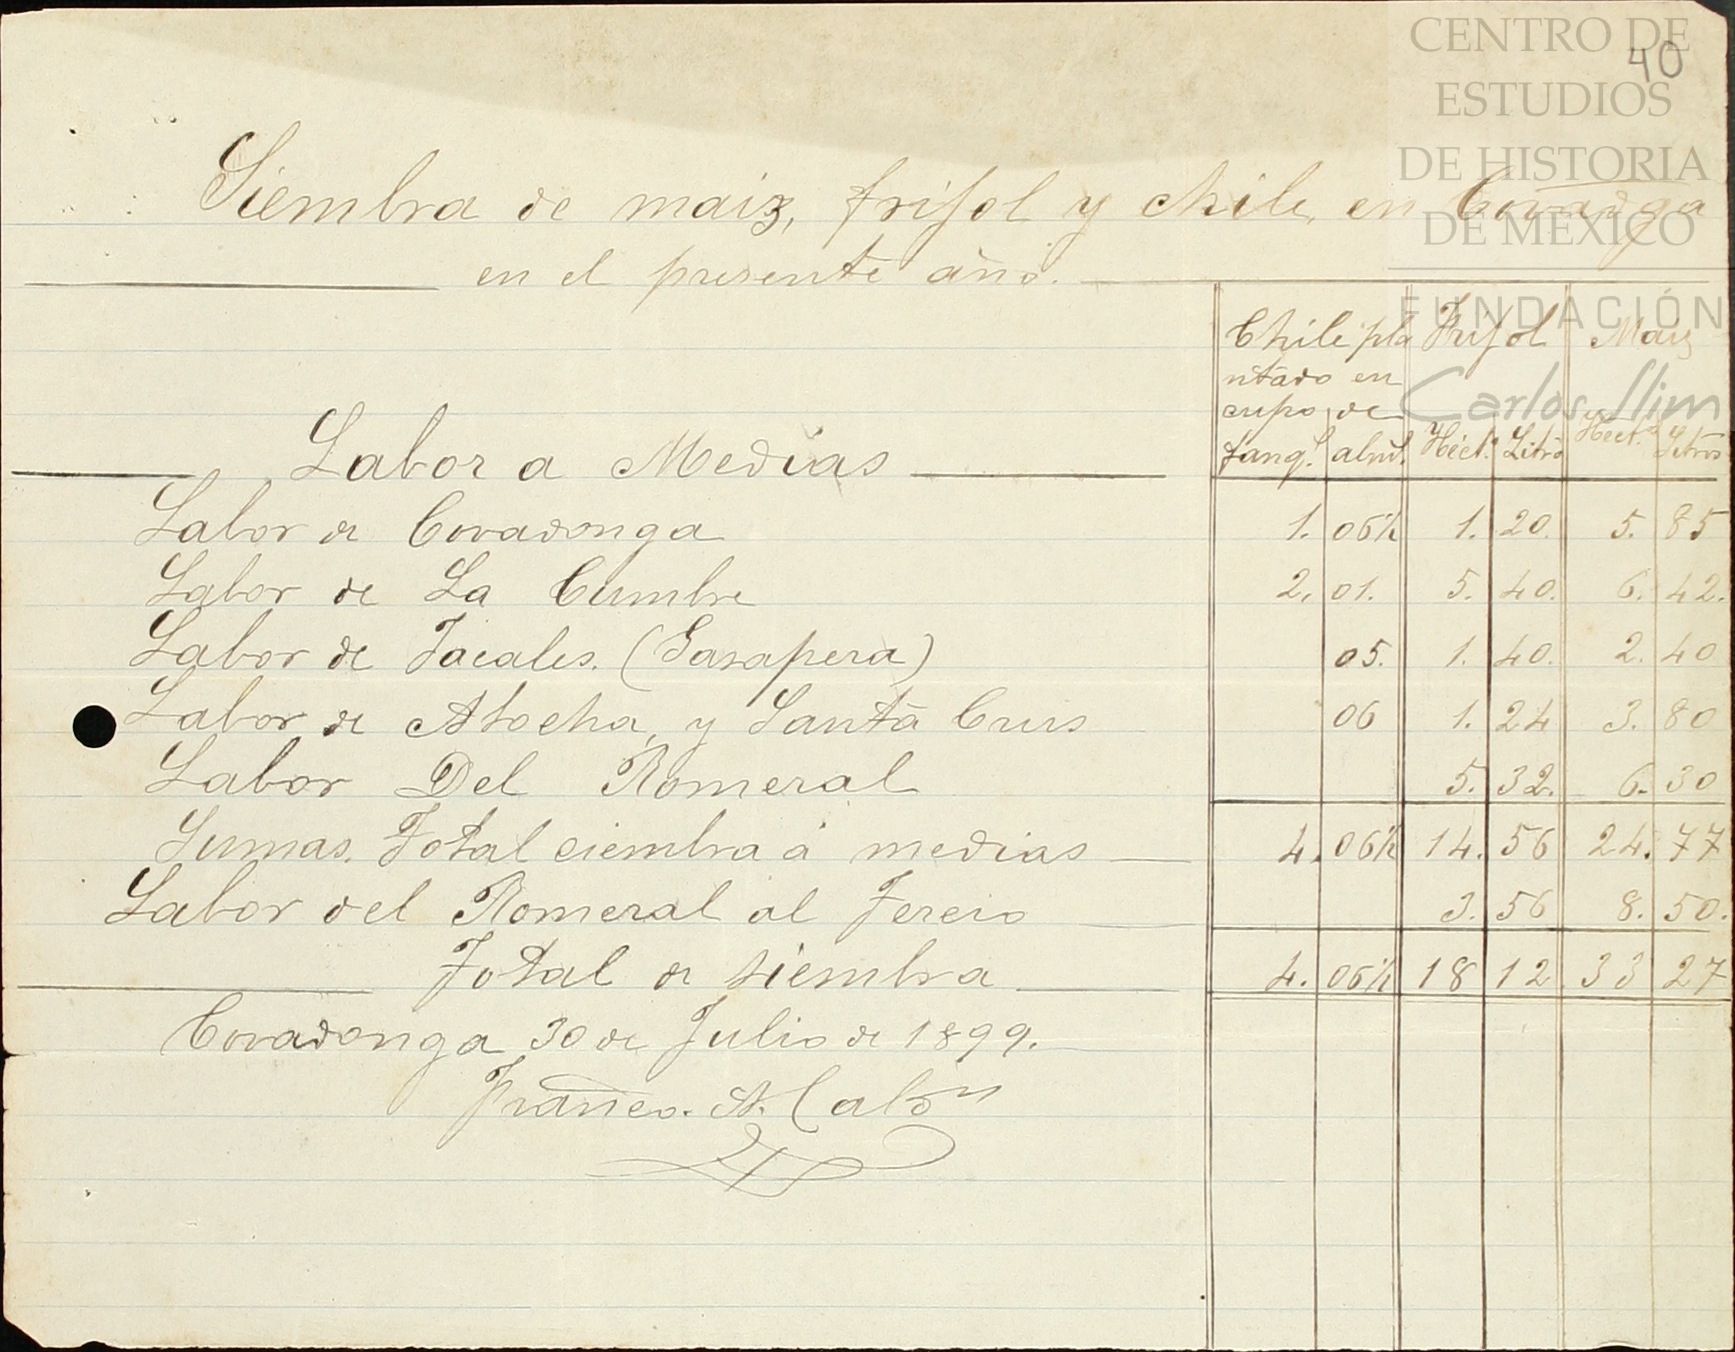 CENTRO DE
ESTUDIOS
DE HISTORIA
DE MEXICO
FUNDACIÓN
Carlos Slim
40
Siembra de maiz, frijol y chile, en Covadga
en el presente año.
Chile pla Frijol Maiz
ntado en
cupo de
fang.s alud.s Héct.s Litro Hect.s Litros
Labor a Medias
Labor de Covadonga 1. 06½ 1. 20. 5. 85
Labor de La Cumbre 2. 01. 5. 40. 6. 42.
Labor de Jacales. (Gasapera) 05. 1. 40. 2. 40
Labor de Atocha, y Santa Crus 06 1. 24 3. 80
Labor Del Romeral 5. 32. 6. 30
Sumas. Total ciembra á medias 4. 06½ 14. 56 24. 77
Labor del Romeral al Tercio 3. 56 8. 50.
Total de siembra 4. 06½ 18 12 33 27
Covadonga 30 de Julio de 1899.
Franco. A.